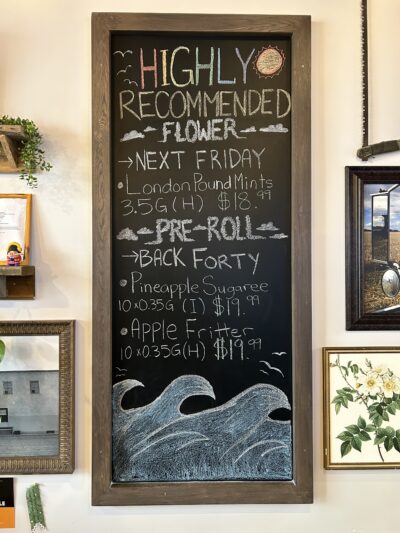 HIGHLY
RECOMMENDED
FLOWER
→NEXT FRIDAY
• London Pound Mints
3.5G (H) $18.99
PRE-ROLL
→BACK FORTY
• Pineapple Sugaree
10x0.35G (I) $19.99
• Apple Fritter
10x0.35G (H) $19.99